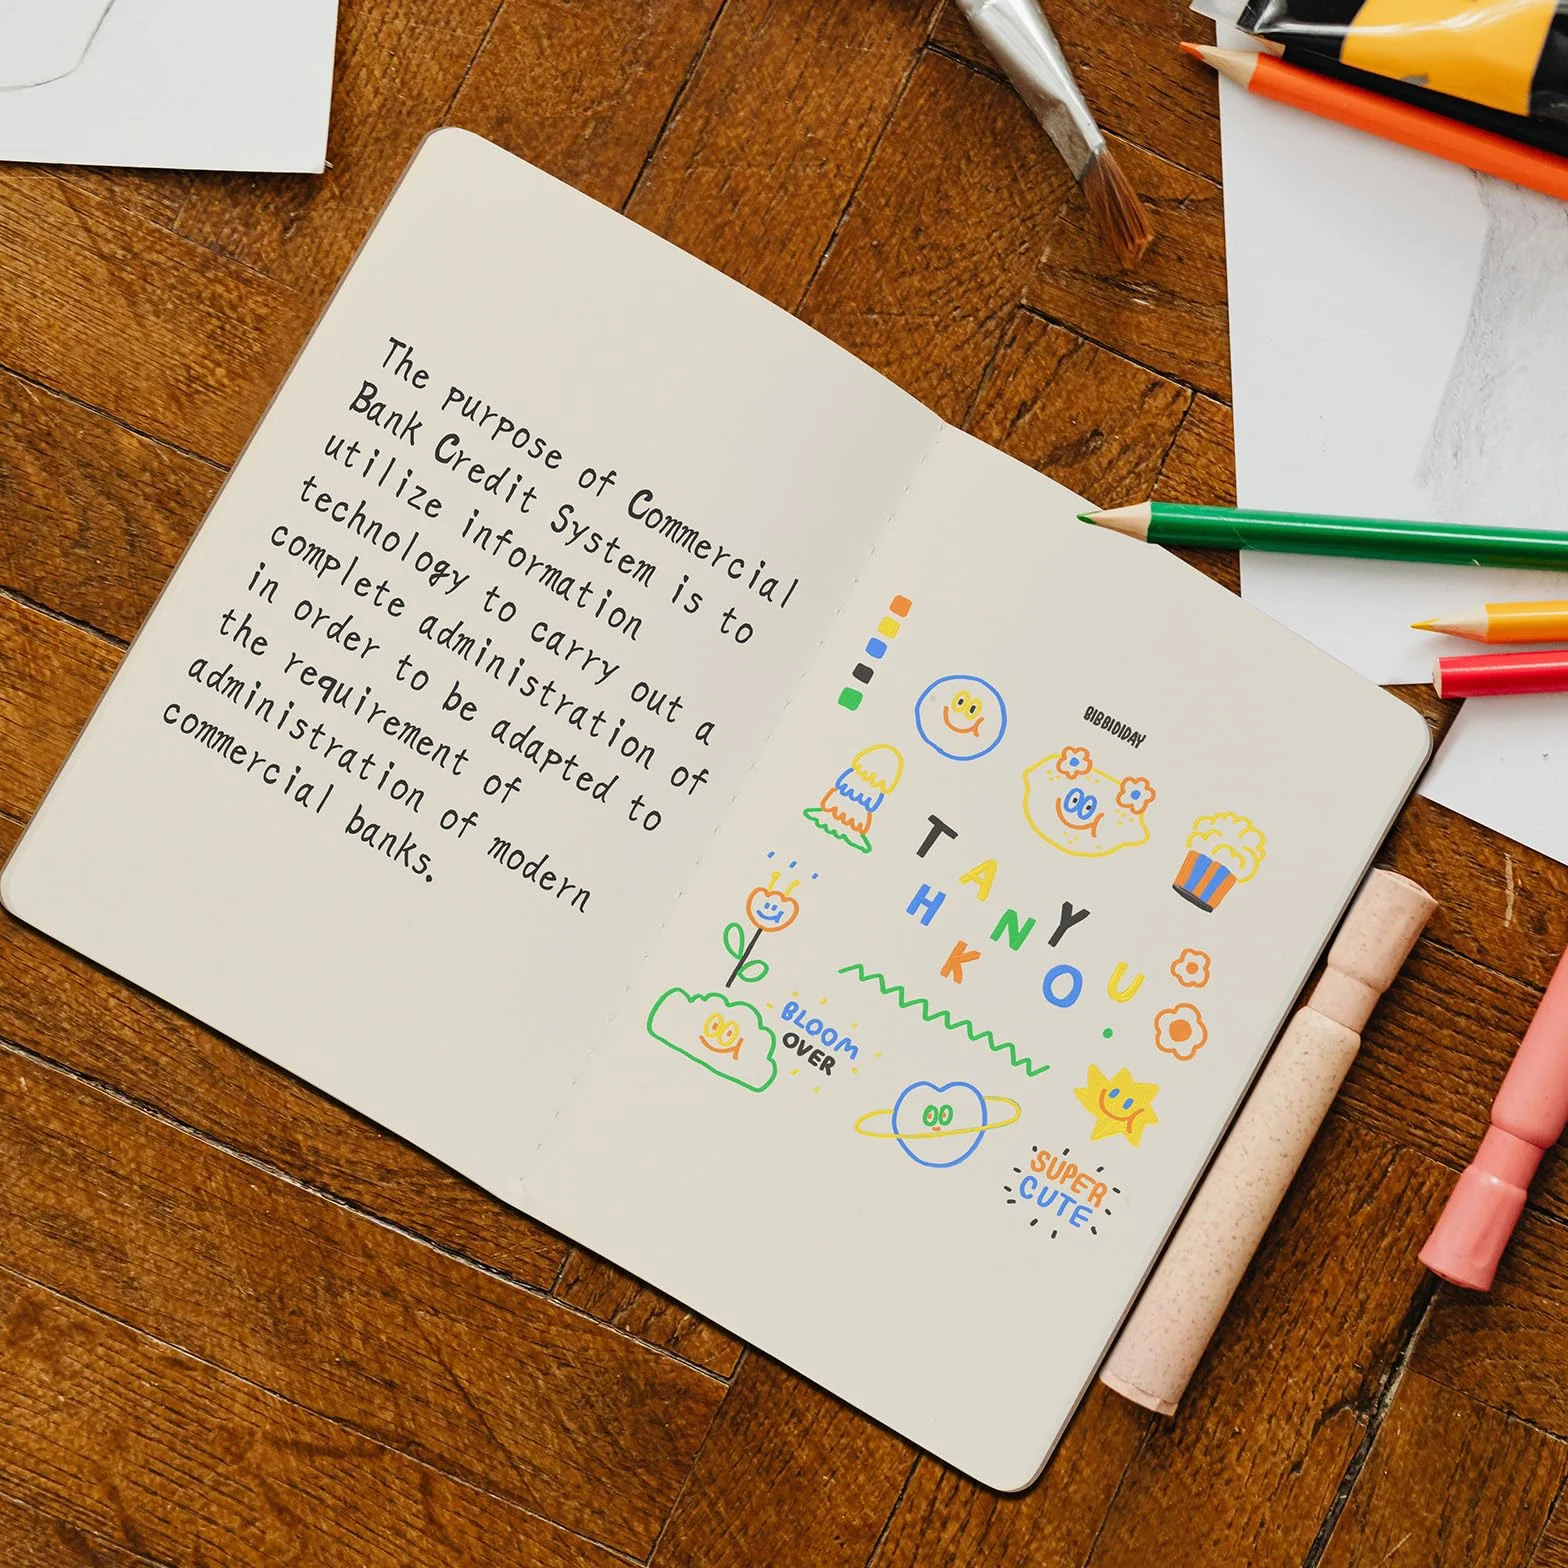 The purpose of Commercial
Bank Credit System is to
utilize information
technology to carry out a
complete administration of
in order to be adapted to
the requirement of
administration of modern
commercial banks.
THANK YOU.
BLOOM
OVER
SUPER
CUTE